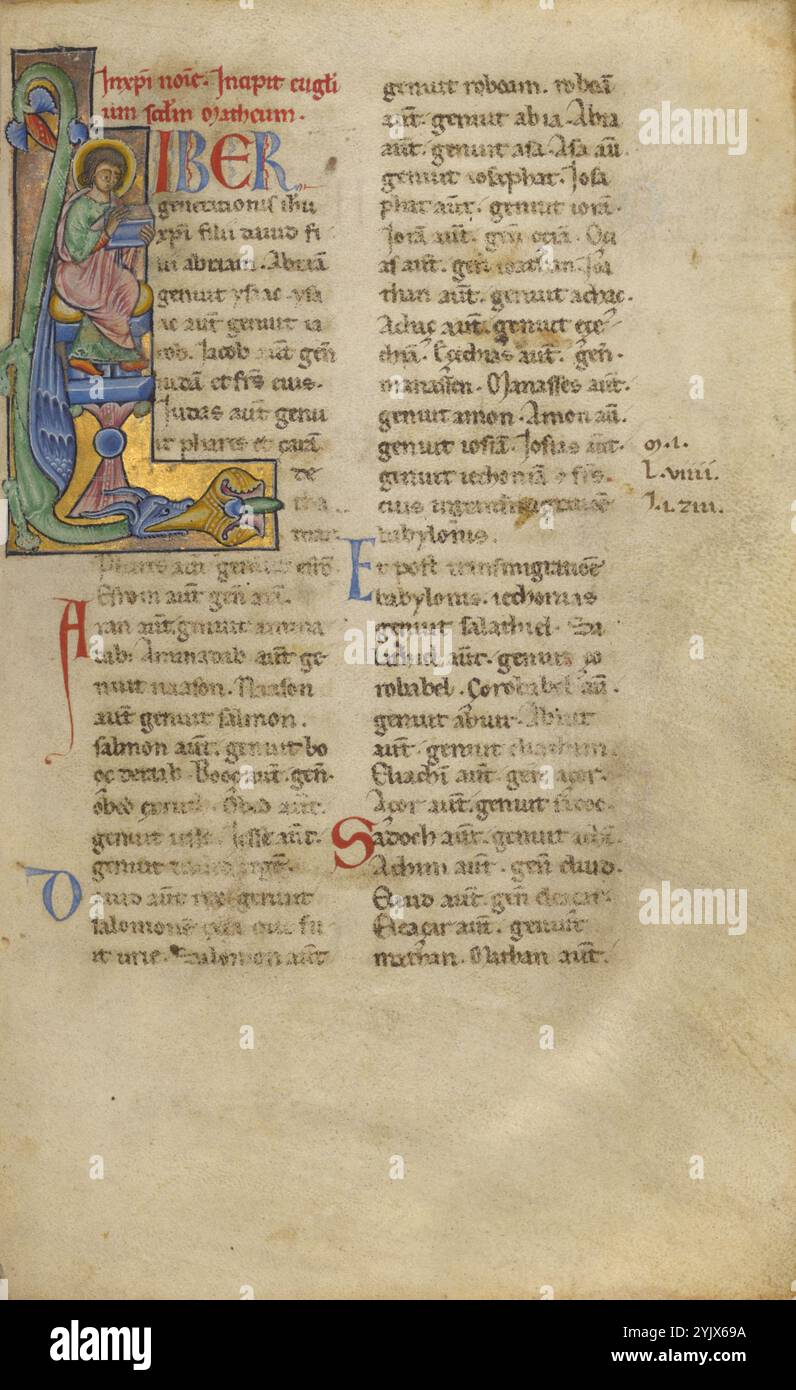 In xpi noie. Incipit eugli
um scdm Matheum.
LIBER
generationis ihu
xpi filii dauid fi
lii abraam. Abraā
genuit ysaac. ysa
ac aut genuit ia
cob. Jacob aūt. gen̄
iudā et frs eius.
Judas aūt genu
it phares et zarā
de
tha
mar.
Phares aūt genuit esrō.
Esrom aūt gen̄ arā.
Aran aūt. genuit amina
dab. Aminadab aūt ge
nuit naason. Naason
aūt genuit salmon.
Salmon aūt. genuit bo
oç de raab. Booç aūt. gen̄.
obed ex ruth. Obed aūt.
genuit iesse. Jesse aūt.
genuit dauid regē.
Dauid aūt rex genuit
salomonē ex ea que fu
it urie. Salomon aūt
genuit roboam. roboā
aūt. genuit abia. Abia
aūt. genuit asa. Asa aū
genuit iosaphat. Josa
phat aūt. genuit iorā.
Jorā aūt. gen̄ oçiā. Oçi
as aūt. gen̄ ioathan. Joa
than aūt. genuit achaç.
Achaç aūt. genuit eçe
chiā. Eçechias aūt. gen̄.
manassen. Manasses aūt.
genuit amon. Amon aū.
genuit iosiā. Josias aūt.
genuit iechoniā & frs.
eius in transmigratione
babylonis.
Et post transmigrationē
babylonis. iechonias
genuit salathiel. Sa
lathiel aūt. genuit ço
robabel. Çorobabel aū.
genuit abiut. Abiut
aūt. genuit eliachim.
Eliachī aūt. gen̄ açor.
Açor aūt. genuit sadoc.
Sadoch aūt. genuit achī.
Achim aūt. gen̄ eliud.
Eliud aūt. gen̄ eleaçar.
Eleaçar aūt. genuit
mathan. Mathan aūt.
M. I.
L. VIIII.
alamy
a
alamy
Image ID: 2YJX69A
www.alamy.com